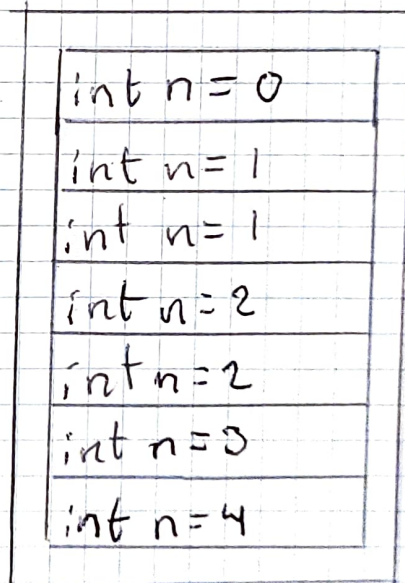 int n = 0
int n = 1
int n = 1
int n = 2
int n = 2
int n = 3
int n = 4